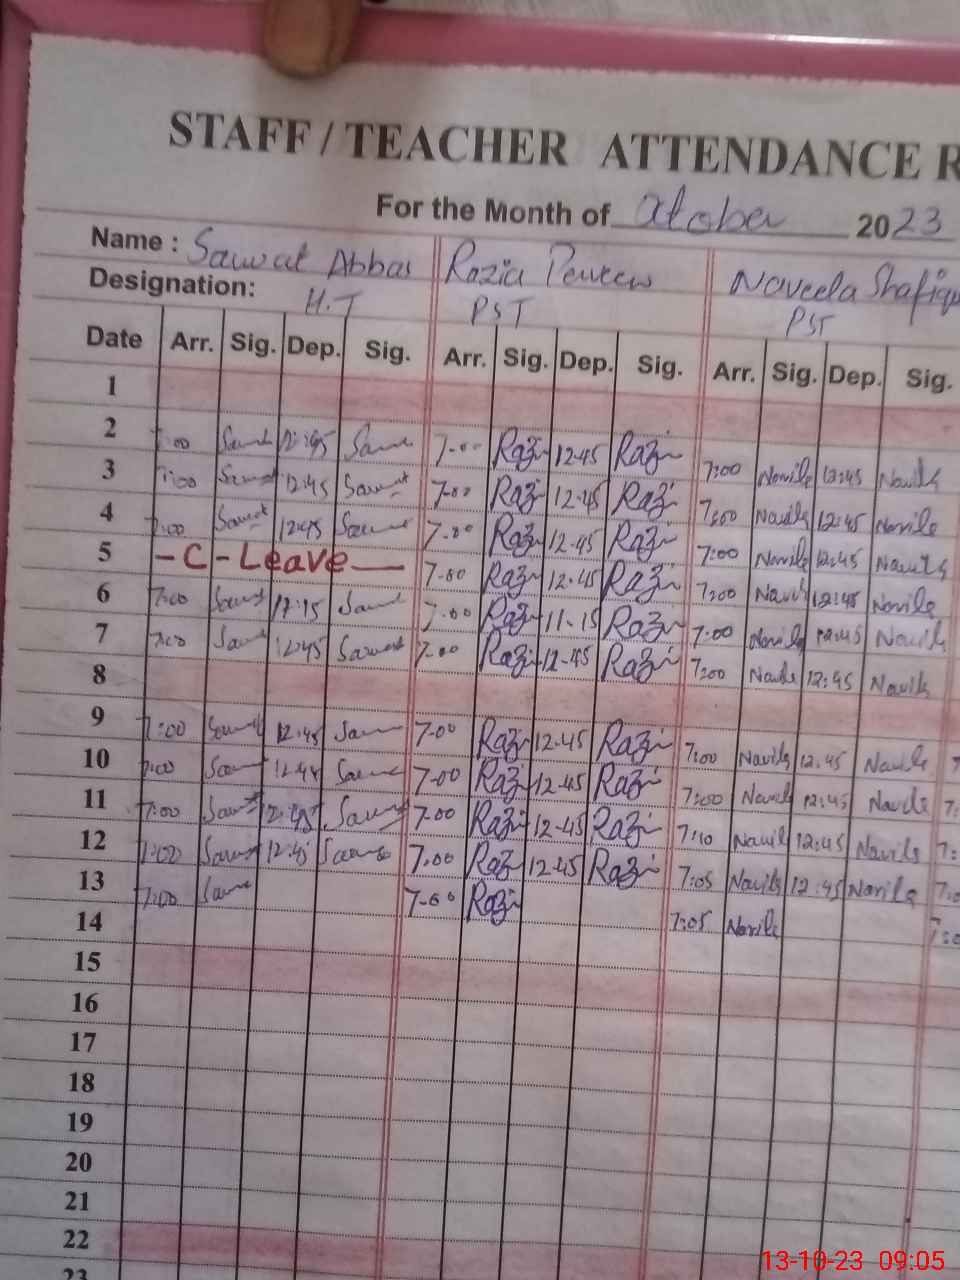 STAFF / TEACHER ATTENDANCE R
For the Month of October 2023
Name : Sawat Abbas Razia Perveen Naveela Shafiqu
Designation: H.T PST PST
Date Arr. Sig. Dep. Sig. Arr. Sig. Dep. Sig. Arr. Sig. Dep. Sig.
1
2 7:00 12:45 7-00 Razi 12-45 Razi 7:00 Navile 12:45 Navile
3 7:00 Sawat 12:45 Sawat 7-00 Razi 12-45 Razi 7:00 Navile 12:45 Navile
4 7:00 Sawat 12:45 7-00 Razi 12-45 Razi 7:00 Navile 12:45 Navile
5 -C-Leave— 7-00 Razi 12-45 Razi 7:00 Navile 12:45 Navile
6 7:00 Sawat 7-00 Razi 11-15 Razi 7:00 Navile 12:45 Navile
7 7:00 12:45 Sawat 7-00 Razi 12-45 Razi 7:00 Navile 12:45 Navile
8
9 7:00 12:45 7-00 Razi 12-45 Razi 7:00 Navile 12:45 Navile
10 7:00 7-00 Razi 12-45 Razi 7:00 Navile 12:45 Navile 7:
11 7:00 12:45 7-00 Razi 12-45 Razi 7:10 Navile 12:45 Navile 7:
12 7:00 12:45 7-00 Razi 12-45 Razi 7:05 Navile 12:45 Navile
13 7:00 7-00 Razi 7:05 Navile
14
15
16
17
18
19
20
21
22
23
13-10-23 09:05